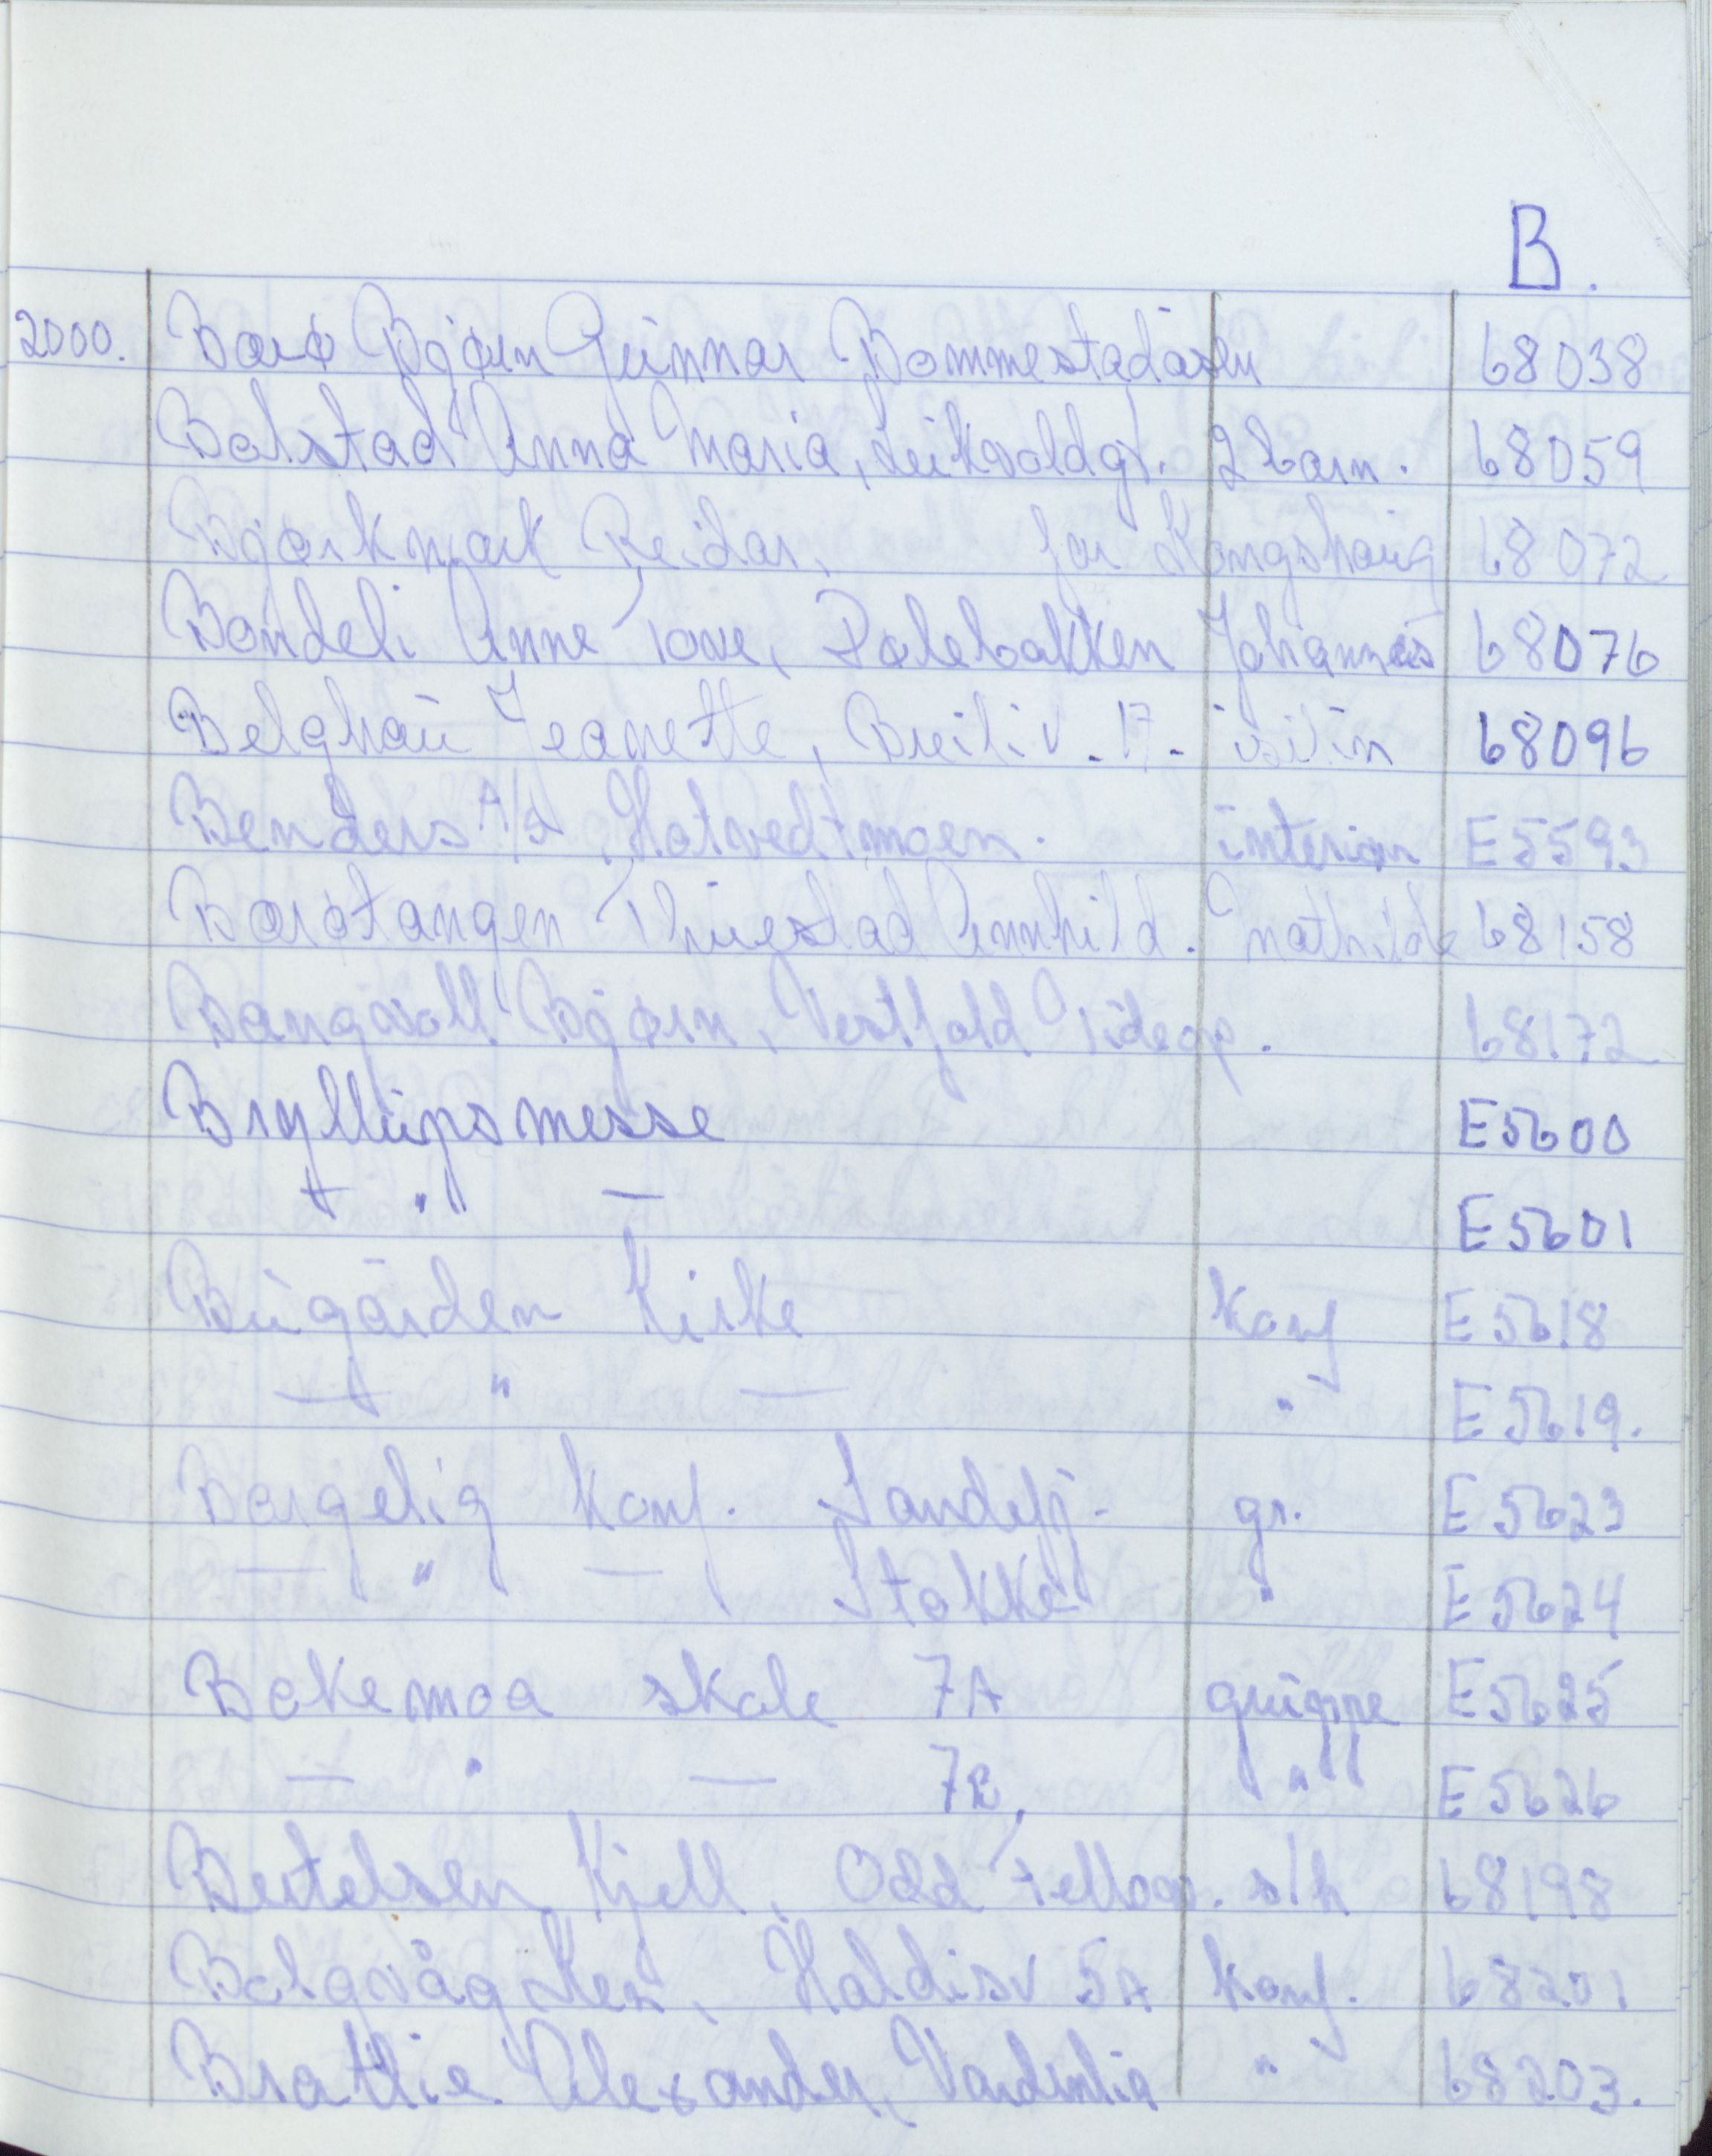 B.
2000. Barø Bjørn Gunnar Bommestadåsen 68038
Bolstad Anna Maria, Leikvoldgt. 2 barn. 68059
Bjørkmark Reidar, for Kongshaug 68072
Bondeli Anne Tove, Dolebakken Johannes 68076
Belghaŭ Jeanette, Breiliv. 17 - iselin 68096
Benders A/S, Hotvedtmoen. interiør E5593
Barøtangen Thuestad Annhild. Mathilde 68158
Bangsoll Bjørn, Vestfold Videop. 68172
Bryllupsmesse E5600
— " — E5601
Bugården Kirke Konf E5618
— " — " E5619.
Borgelig Konf. Sandefj- gr. E5623
— " — Stokke " E5624
Bøkemoa skole 7A gruppe E5625
— " — 7B, " E5626
Bertelsen Kjell, Odd Fellow. s/h 68198
Bolgvåg, Haldisv 5A Konf. 68201
Brathie Alexander, " 68203.